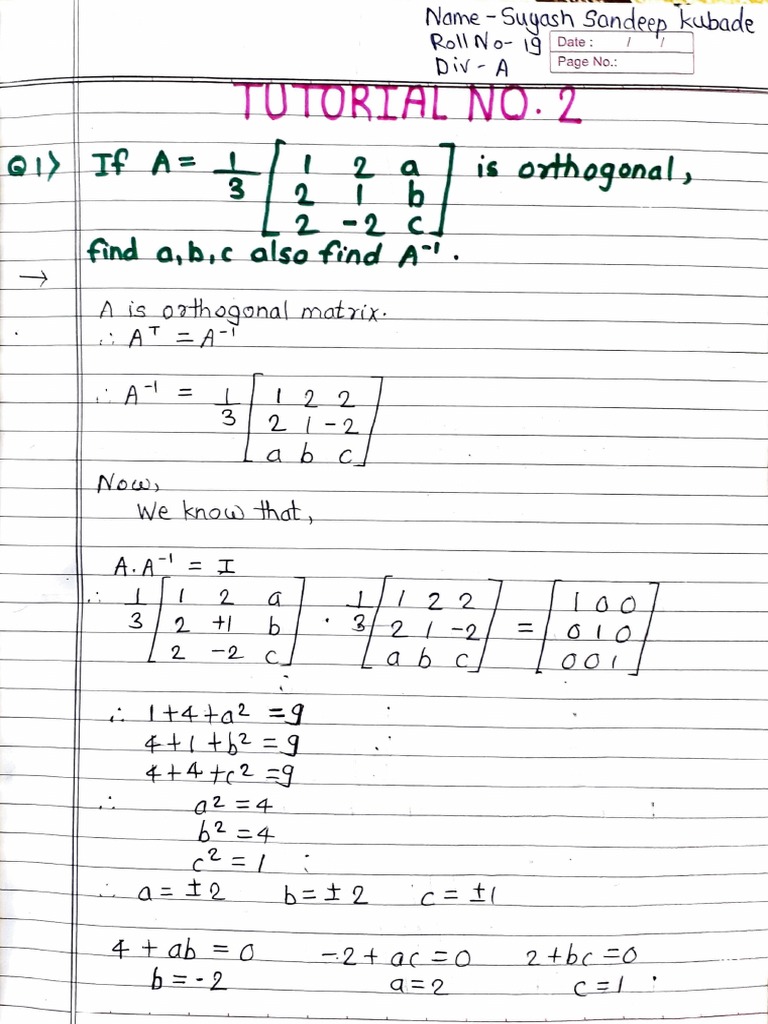 Name - Suyash Sandeep Kubade
Roll No- 19
Date : / /
Div - A
Page No.:
TUTORIAL NO. 2
Q1> If A = 1/3 [1 2 a
2 1 b
2 -2 c] is orthogonal,
find a,b,c also find A⁻¹.
→
A is orthogonal matrix.
∴ Aᵀ = A⁻¹
∴ A⁻¹ = 1/3 [1 2 2
2 1 -2
a b c]
Now,
We know that,
A.A⁻¹ = I
∴ 1/3 [1 2 a
2 +1 b
2 -2 c] · 1/3 [1 2 2
2 1 -2
a b c] = [1 0 0
0 1 0
0 0 1]
∴ 1+4+a² = 9
4+1+b² = 9
4+4+c² = 9
∴ a² = 4
b² = 4
c² = 1
∴ a = ±2 b = ±2 c = ±1
4 + ab = 0 -2 + ac = 0 2 + bc = 0
b = -2 a = 2 c = 1